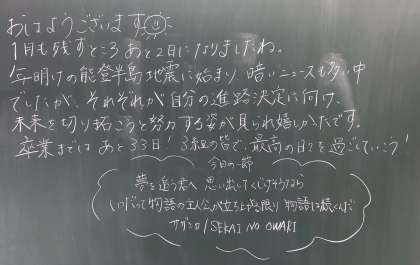 おはようございます
1月も残すところあと2日になりましたね。
年明けの能登半島地震に始まり、暗いニュースも多い中
でしたが、それぞれが自分の進路決定に向け、
未来を切り拓こうと努力する姿が見られ嬉しかったです。
卒業まではあと33日！3組の皆で、最高の日々を過ごしていこう！
今日の一節
夢を追う君へ 思い出してくじけそうなら
いつだって物語の主人公が立ち上がる限り 物語は続くんだ
サザンカ/SEKAI NO OWARI